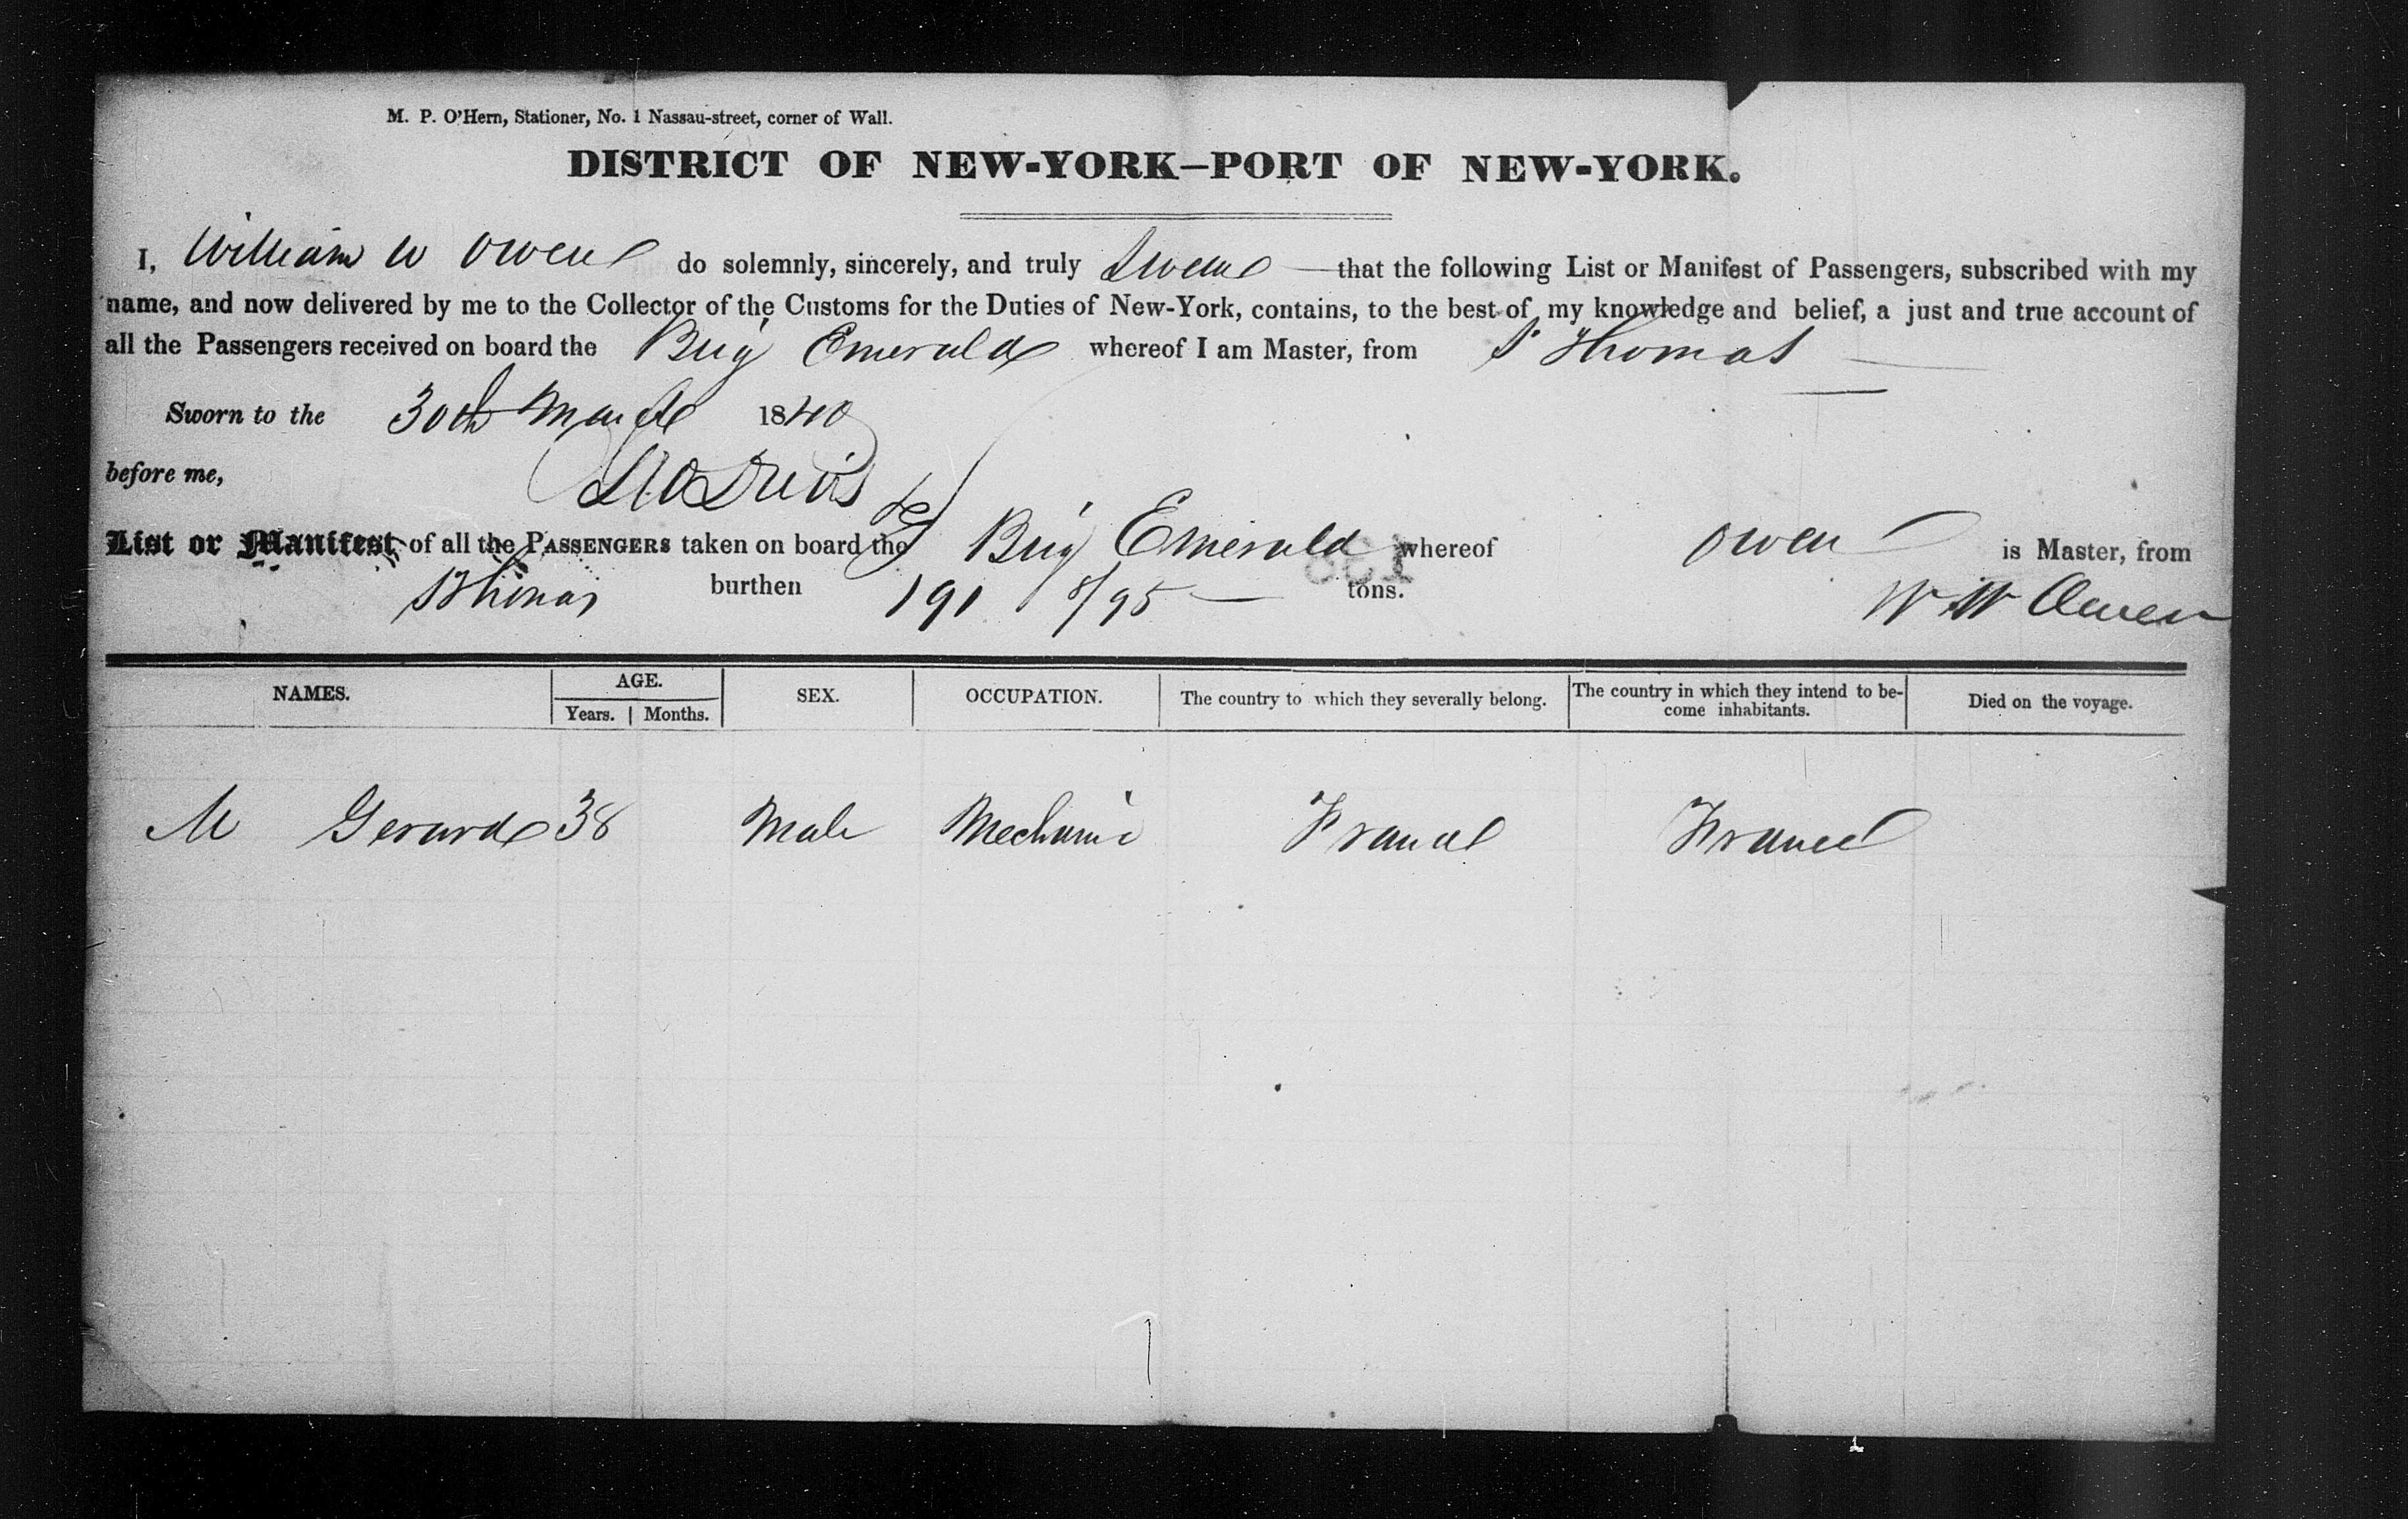 M. P. O'Hern, Stationer, No. 1 Nassau-street, corner of Wall.
DISTRICT OF NEW-YORK—PORT OF NEW-YORK.
I, William W Owen do solemnly, sincerely, and truly Swear that the following List or Manifest of Passengers, subscribed with my
name, and now delivered by me to the Collector of the Customs for the Duties of New-York, contains, to the best of my knowledge and belief, a just and true account of
all the Passengers received on board the Brig Emerald whereof I am Master, from St Thomas
Sworn to the 30th March 1840
before me,
List or Manifest of all the PASSENGERS taken on board the Brig Emerald whereof Owen is Master, from
St Thomas burthen 191 8/95 tons.
W W Owen
NAMES. AGE. Years. Months. SEX. OCCUPATION. The country to which they severally belong. The country in which they intend to be-
come inhabitants. Died on the voyage.
M Gerard 38 Male Mechanic France France